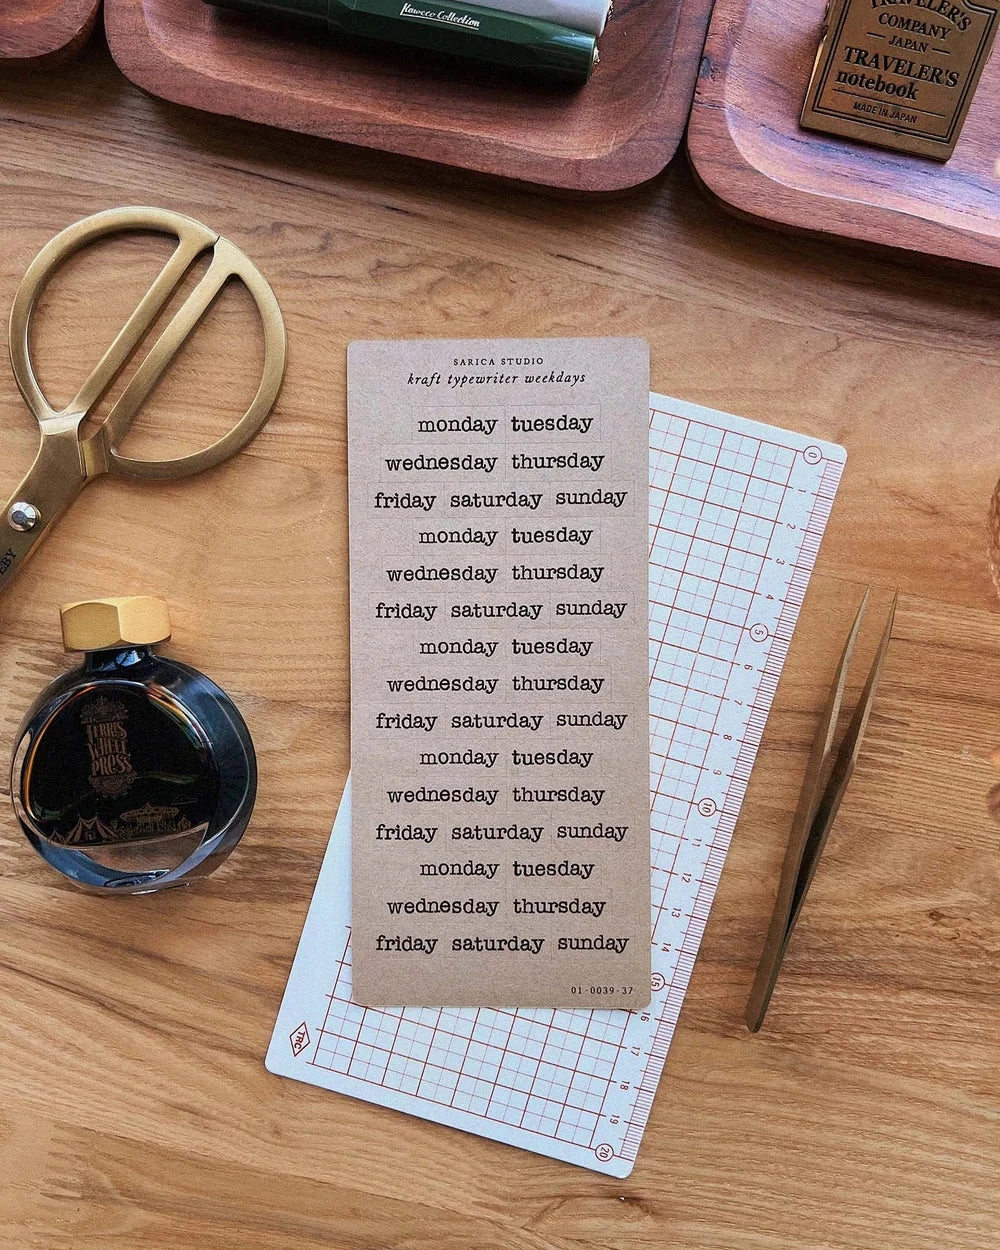 Kaweco Collection
TRAVELER'S
COMPANY
JAPAN
TRAVELER'S
notebook
MADE IN JAPAN
SARICA STUDIO
kraft typewriter weekdays
monday tuesday
wednesday thursday
friday saturday sunday
monday tuesday
wednesday thursday
friday saturday sunday
monday tuesday
wednesday thursday
friday saturday sunday
monday tuesday
wednesday thursday
friday saturday sunday
monday tuesday
wednesday thursday
friday saturday sunday
01-0039-37
FERRIS
WHEEL
PRESS
0
1
2
3
4
5
6
7
8
9
10
11
12
13
14
15
16
17
18
19
20
TRC